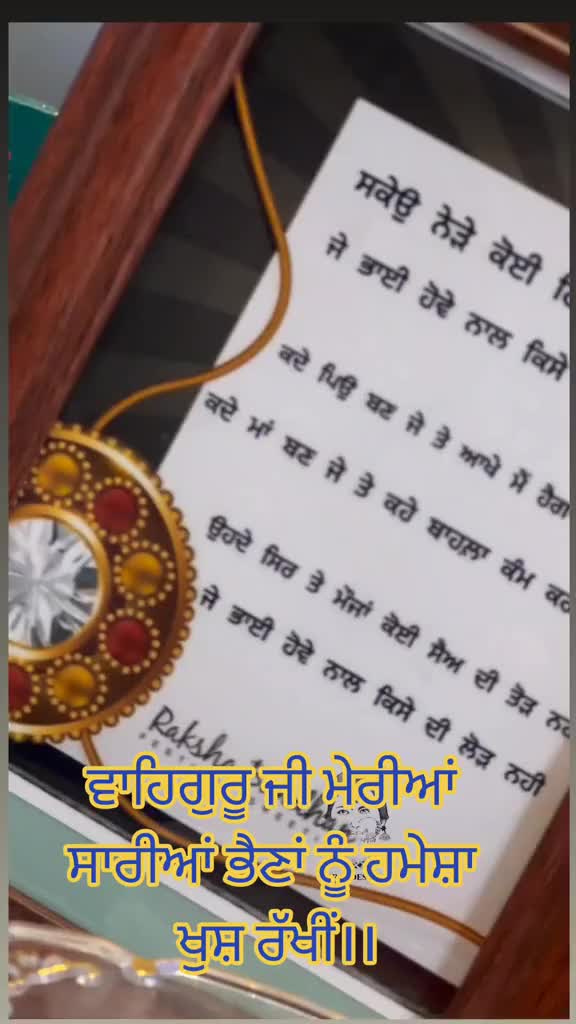 ਸਕੇਉ ਨੇੜੇ ਕੋਈ
ਜੇ ਭਾਈ ਹੋਵੇ ਨਾਲ ਕਿਸੇ
ਕਦੇ ਪਿਉ ਬਣ ਜੇ ਤੇ ਆਖੇ ਮੈਂ ਹੈਗਾ
ਕਦੇ ਮਾਂ ਬਣ ਜੇ ਤੇ ਕਹੇ ਬਾਹਲਾ ਕੰਮ
ਉਹਦੇ ਸਿਰ ਤੇ ਮੌਜਾਂ ਕੋਈ ਸ਼ੈਅ ਦੀ ਤੋੜ
ਜੇ ਭਾਈ ਹੋਵੇ ਨਾਲ ਕਿਸੇ ਦੀ ਲੋੜ ਨਹੀ
Raksha
ਵਾਹਿਗੁਰੂ ਜੀ ਮੇਰੀਆਂ
ਸਾਰੀਆਂ ਭੈਣਾਂ ਨੂੰ ਹਮੇਸ਼ਾ
ਖੁਸ਼ ਰੱਖੀਂ।।